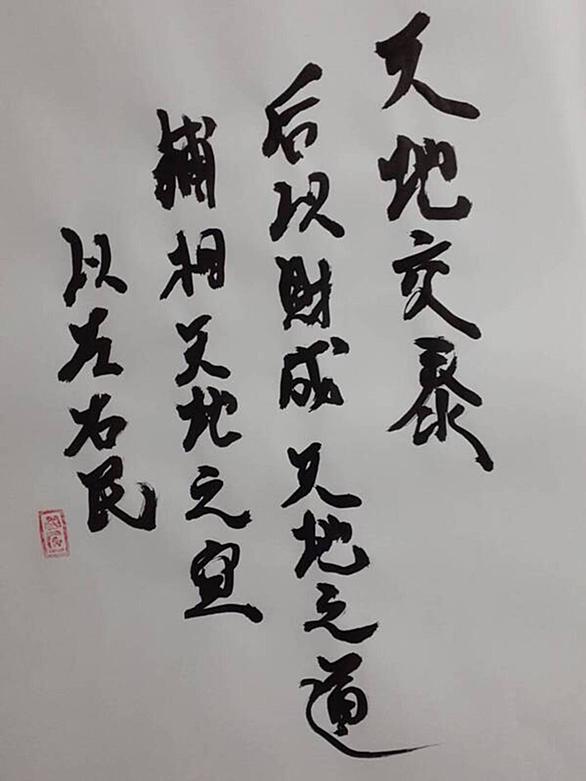 天地交泰
后以財成天地之道
輔相天地之宜
以左右民